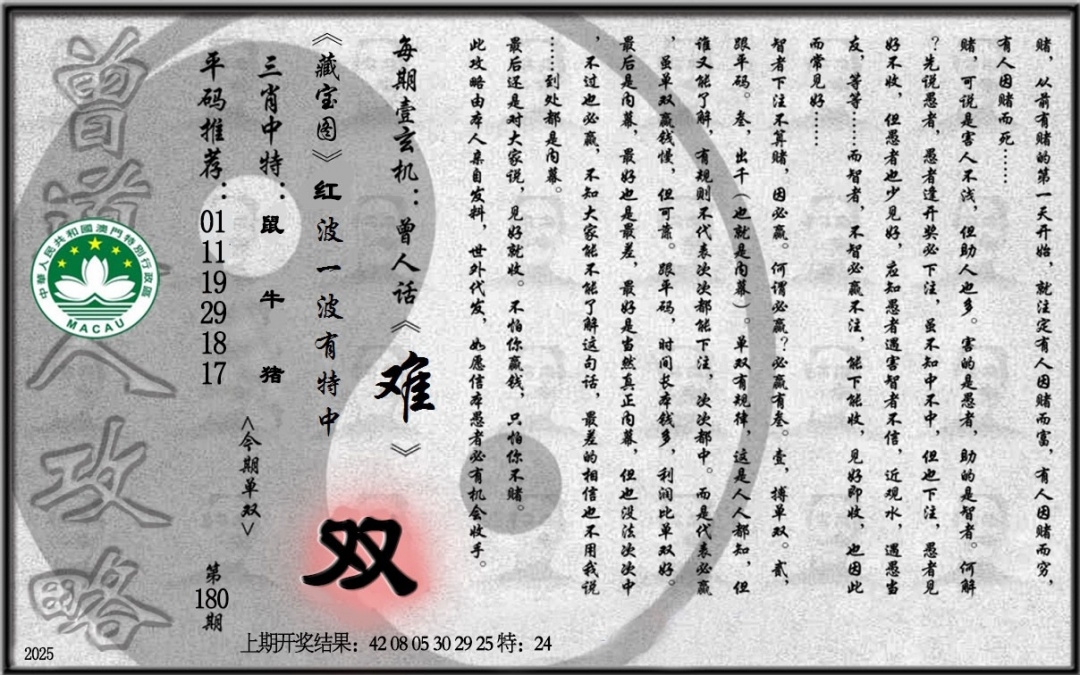 赌，从前有赌的第一天开始，就注定有人因赌而富，有人因赌而穷，
有人因赌而死……
赌，可说是害人不浅，但助人也多。害的是愚者，助的是智者。何解
？先说愚者，愚者逢开奖必下注，虽不知中不中，但也下注，愚者见
好不收，但愚者也少见好，应知愚者遇害智者不信，近观水，遇愚当
友，等等……而智者，不智必赢不注，能下能收，见好即收，也因此
而常见好……
智者下注不算赌，因必赢。何谓必赢？必赢有叁。壹，搏单双。贰，
跟平码。叁，出千（也就是内幕）。单双有规律，这是人人都知，但
谁又能了解，有规则不代表次次都能下注，次次都中。而是代表必赢
，虽单双赢钱慢，但可靠。跟平码，时间长本钱多，利润比单双好。
最后是内幕，最好也是最差，最好是当然真正内幕，但也没法次次中
，不过也必赢，不知大家能不能了解这句话，最差的相信也不用我说
……到处都是内幕。
最后还是对大家说，见好就收。不怕你赢钱，只怕你不赌。
此攻略由本人亲自发料，世外代发，如愿信本愚者必有机会收手。
每期壹玄机：曾人话《难》
《藏宝图》红波一波有特中
双
三肖中特：鼠 牛 猪
<今期单双>
平码推荐：01 11 19 29 18 17
第180期
曾道人攻略
中華人民共和國澳門特別行政區
MACAU
上期开奖结果：42 08 05 30 29 25 特：24
2025